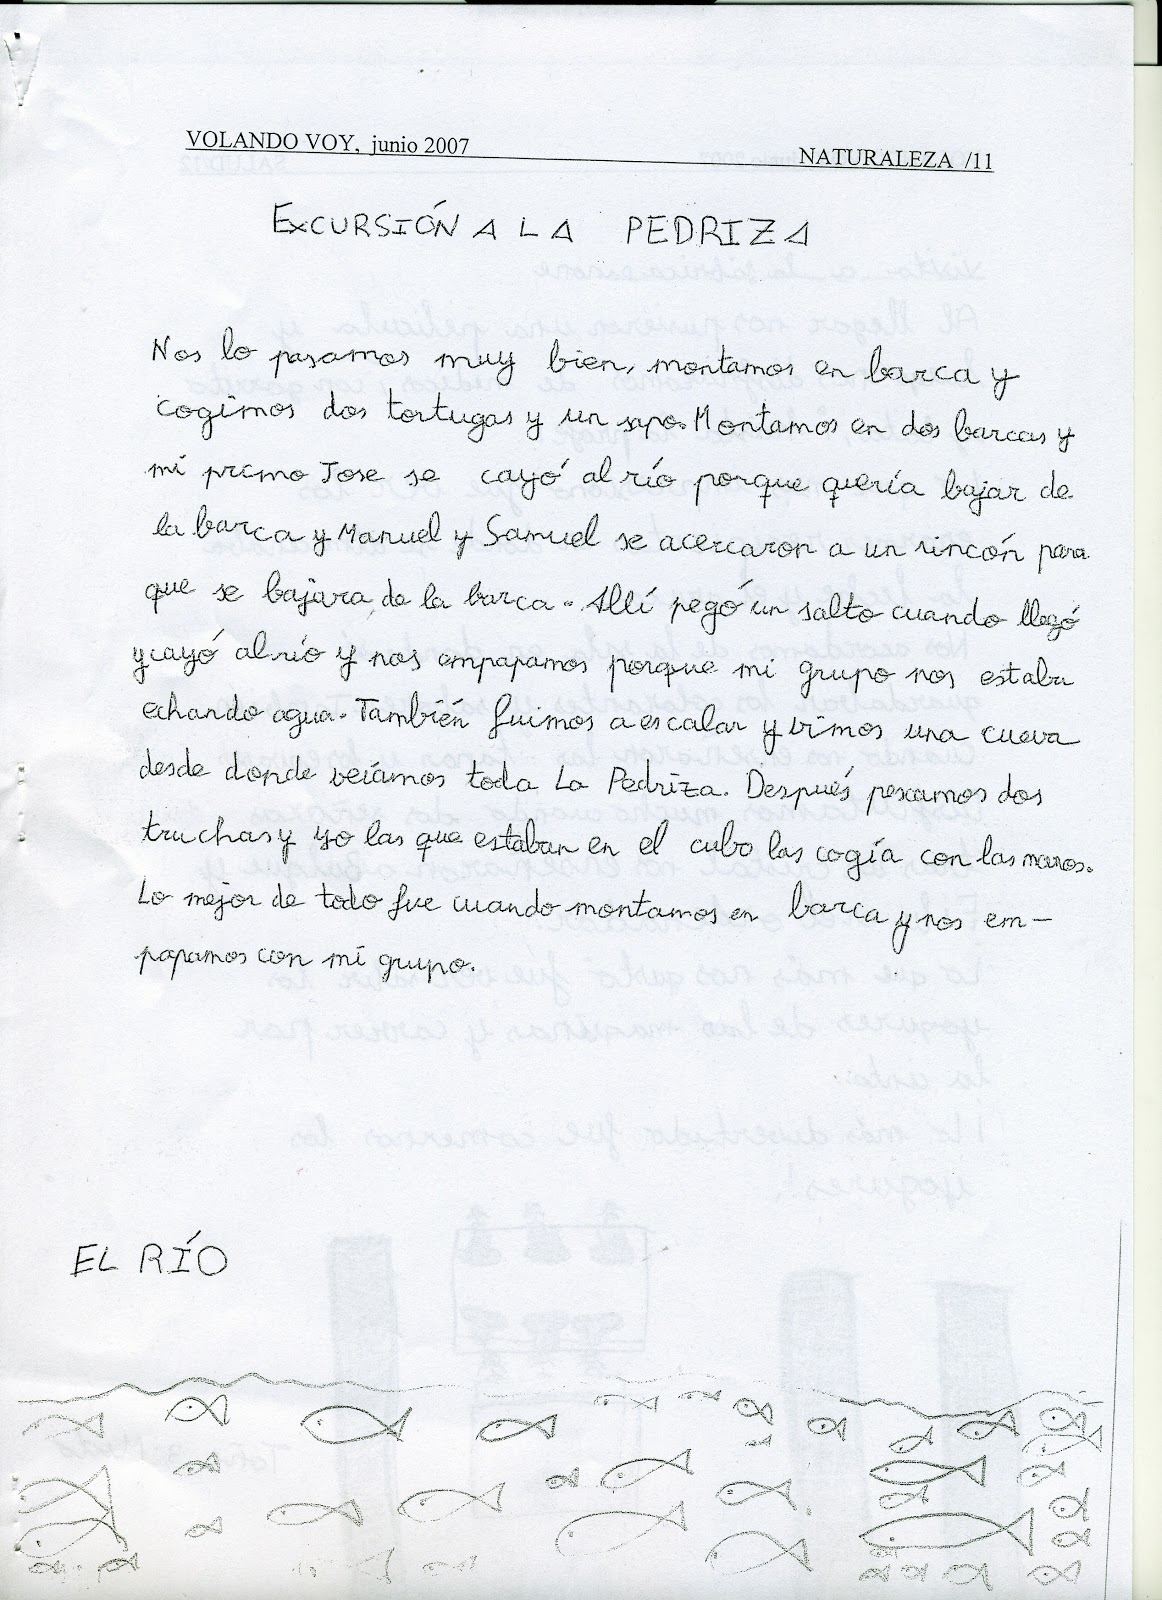 VOLANDO VOY, junio 2007 NATURALEZA /11
EXCURSIÓN A LA PEDRIZA
Nos lo pasamos muy bien, montamos en barca y
cogimos dos tortugas y un sapo. Montamos en dos barcas y
mi primo Jose se cayó al río porque quería bajar de
la barca y Manuel y Samuel se acercaron a un rincón para
que se bajara de la barca. Allí pegó un salto cuando llegó
y cayó al río y nos empapamos porque mi grupo nos estaba
echando agua. También fuimos a escalar y vimos una cueva
desde donde veíamos toda La Pedriza. Después pescamos dos
truchas y yo las que estaban en el cubo las cogía con las manos.
Lo mejor de todo fue cuando montamos en barca y nos em-
papamos con mi grupo.
EL RÍO